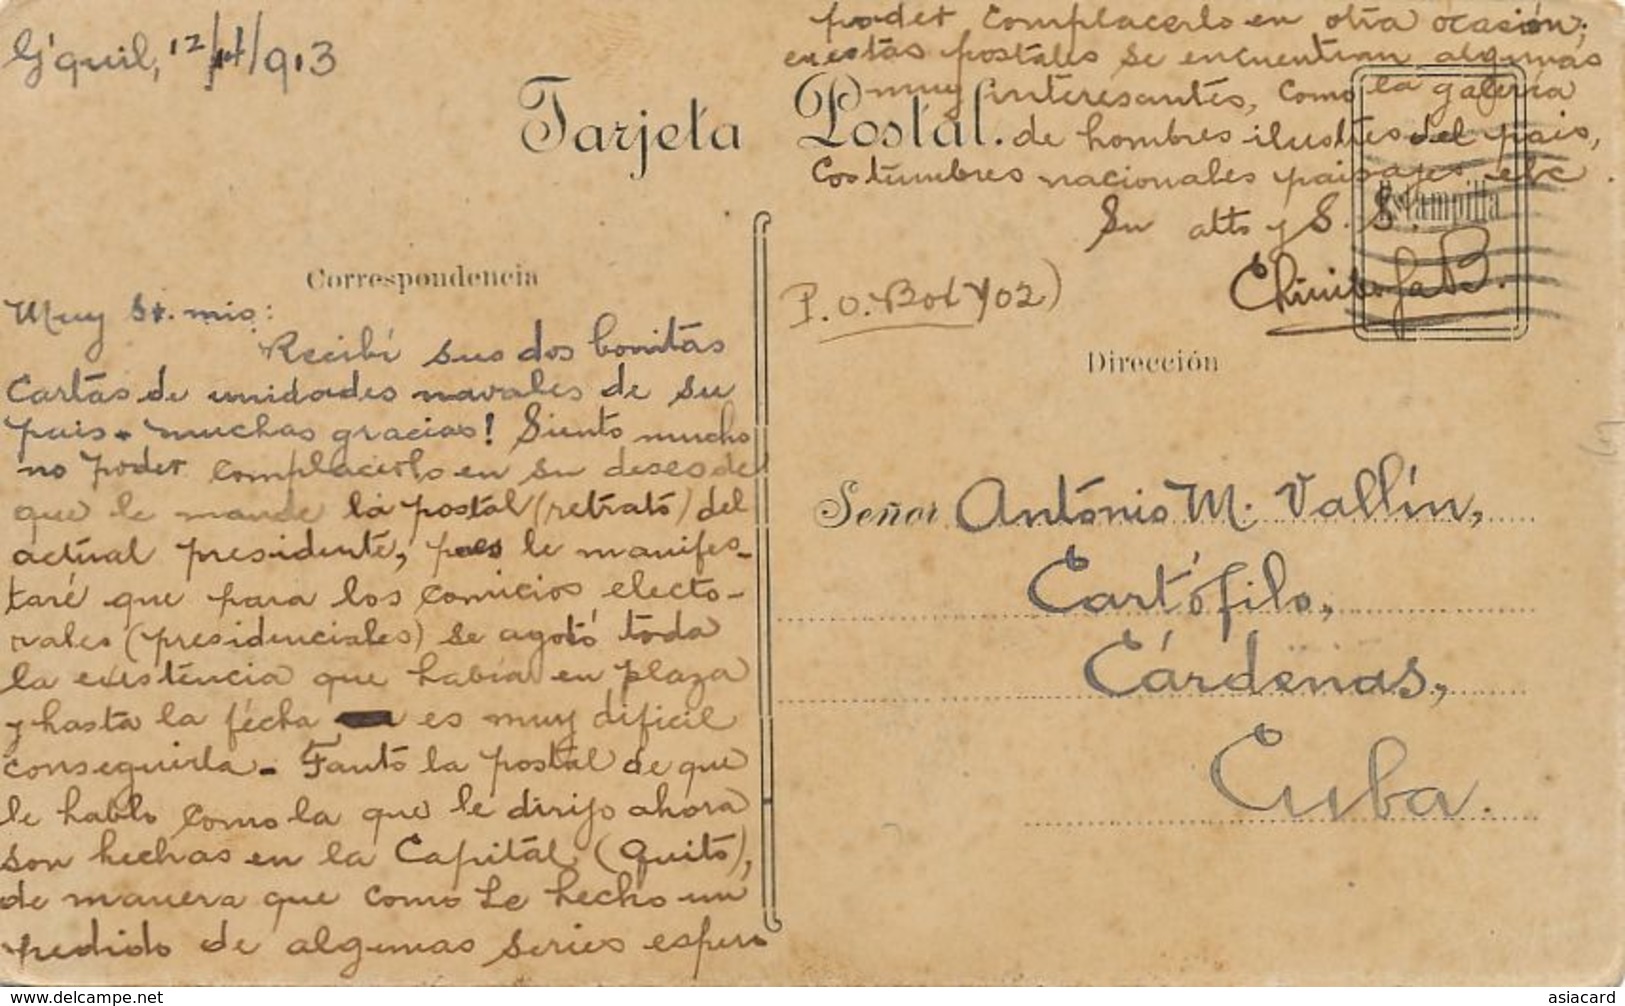 G'quil, 12/11/913
Tarjeta Postal.
Correspondencia
Muy Sr. mio:
Recibí sus dos bonitas
Cartas de unidades navales de su
pais - muchas gracias! Siento mucho
no poder complacerlo en su deseo de
que le mande la postal (retrato) del
actual presidente, pues le manifes-
taré que para los comicios electo-
rales (presidenciales) se agotó toda
la existencia que había en plaza
y hasta la fécha es muy dificil
conseguirla - Tanto la postal de que
le hablo como la que le dirijo ahora
son hechas en la Capital (Quito),
de manera que como he hecho un
pedido de algunas series espero
poder complacerlo en otra ocasión;
en estas postales se encuentran algunas
muy interesantes, como la galeria
de hombres ilustres del pais,
Costumbres nacionales paisajes etc.
Su atto y S. S.
Estampilla
B.
P.O. Box 702)
Dirección
Señor Antonio M. Vallín,
Cartófilo,
Cárdenas,
Cuba.
www.delcampe.net
asiacard